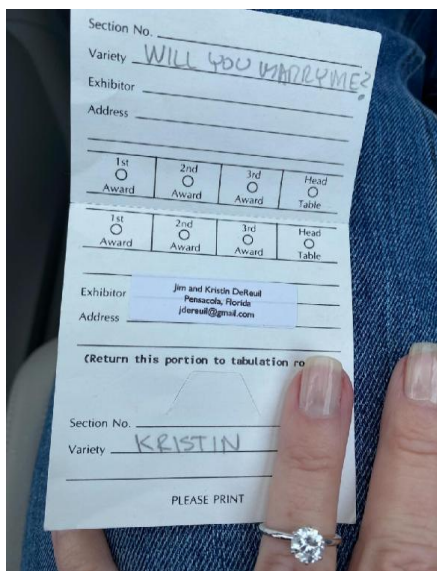 Section No.
Variety WILL YOU MARRY ME?
Exhibitor
Address
1st Award 2nd Award 3rd Award Head Table
1st Award 2nd Award 3rd Award Head Table
Exhibitor Jim and Kristin DeReuil
Pensacola, Florida
Address jdereuil@gmail.com
(Return this portion to tabulation ro
Section No.
Variety KRISTIN
PLEASE PRINT